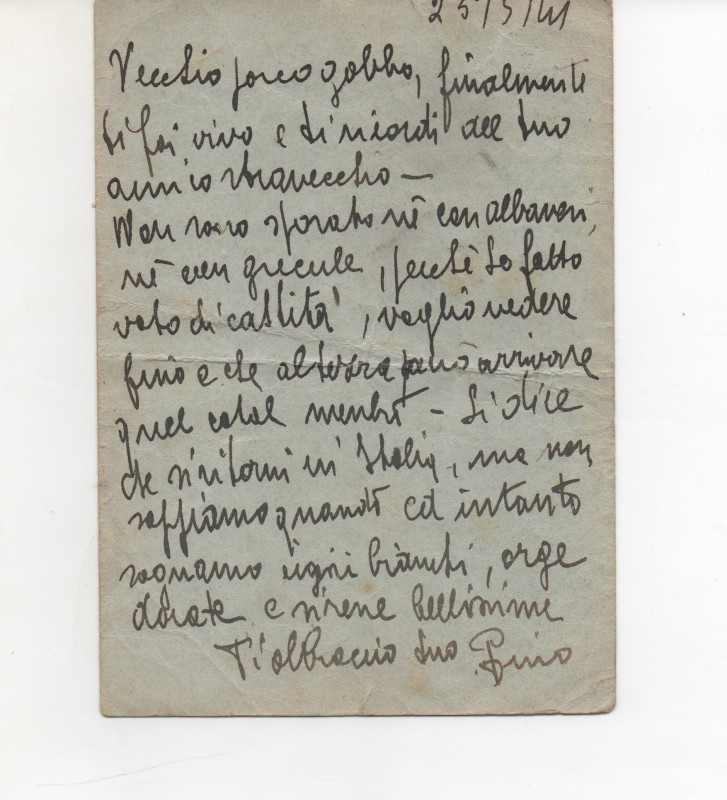 25/5/41
Vecchio porco gobbo, finalmente
ti fai vivo e ti ricordi del tuo
amico stravecchio —
Non sono sposato nè con albanesi,
nè con grecule, perchè ho fatto
voto di castità, voglio vedere
fino a che altezza può arrivare
quel cotal membro — Si dice
che si ritorni in Italia, ma non
sappiamo quando ed intanto
sogniamo cigni bianchi, orge
dorate e sirene bellissime
Ti abbraccio tuo Pino